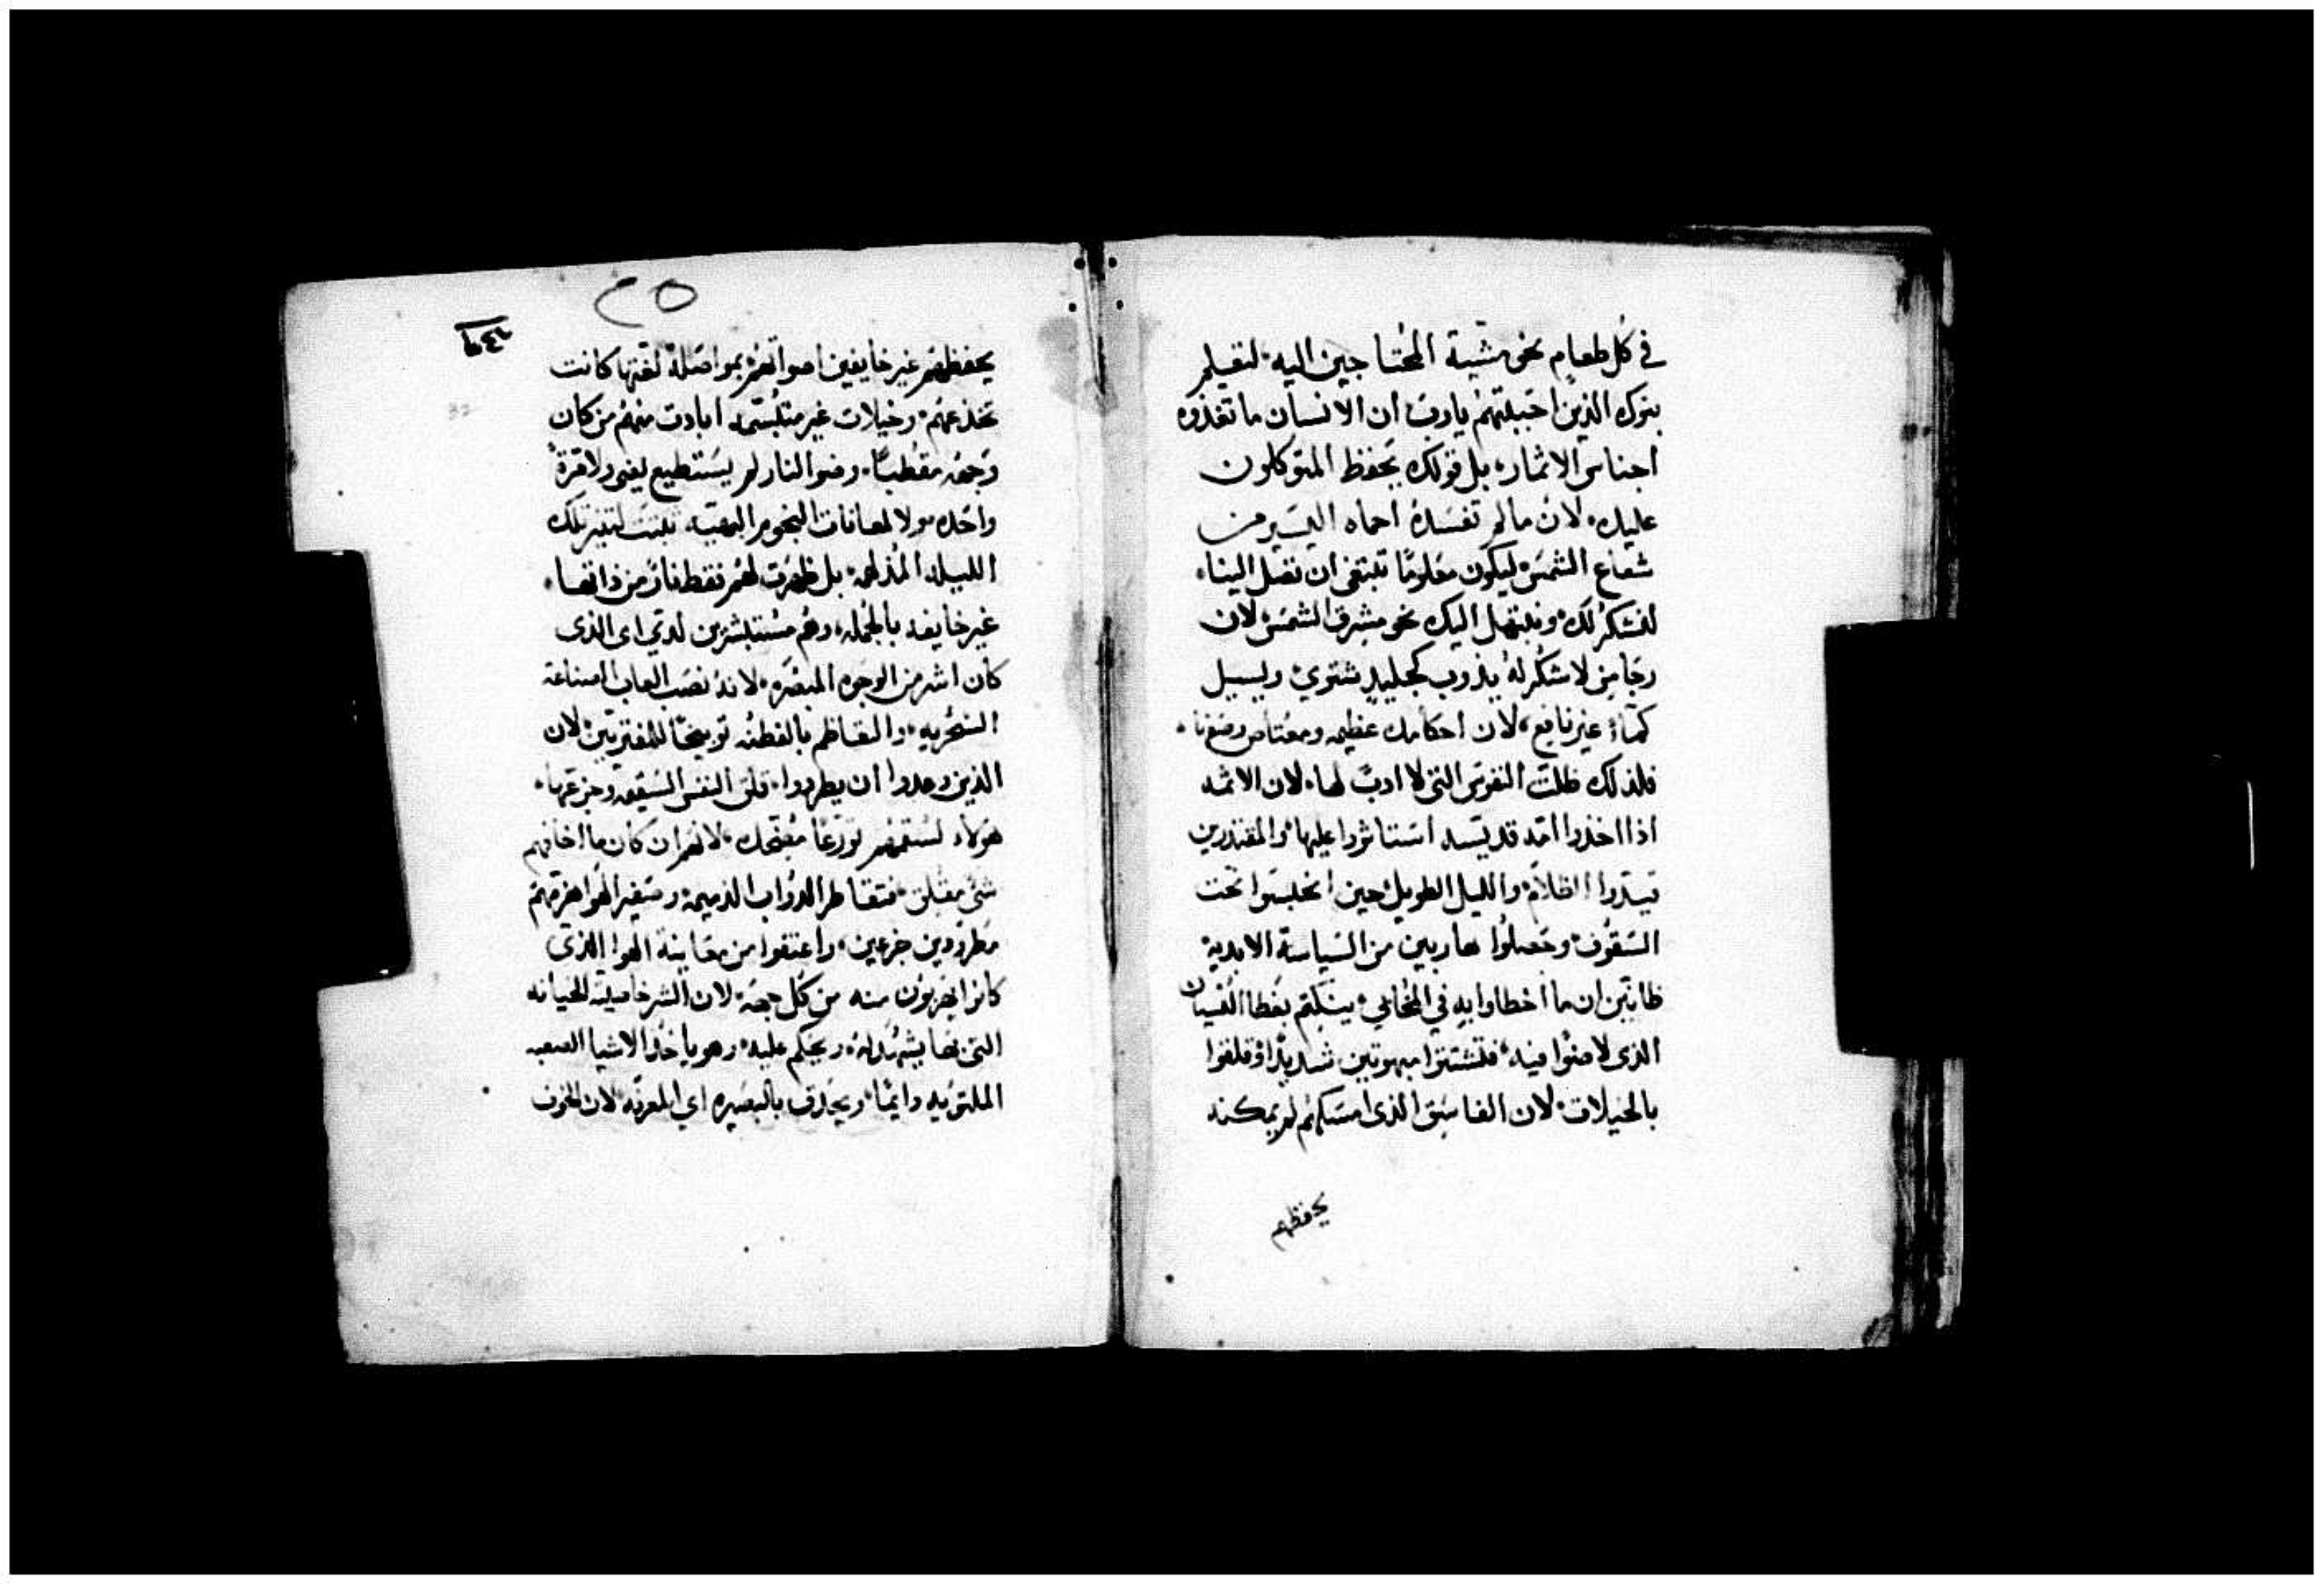 في كل طعام نحو مشية المحتاجين اليه لتعيلم
بنوك الذين احببتهم يارب ان الانسان ما تغذوه
اجناس الاثمار بل قولك يحفظ المتوكلون
عليك لان ما لم تفسده احماه اليسير من
شعاع الشمس ليكون معلومًا تبتغي ان نصل الينا
لنشكر لك ونبتهل اليك نحو مشرق الشمس لان
رجا من لا شكر له يذوب كجليد شتوي ويسيل
كماءٍ غير نافع لان احكامك عظيمه ومعتاص وصفها
فلذلك ظلت النفوس التي لا ادب لها لان الاثمه
اذا اخذوا امه قديسه استاثروا عليها والمقتدرين
قيدوا الظلام والليل الطويل حين انحبسوا تحت
السقوف وحصلوا هاربين من السياسة الابدية
ظانين ان ما اخطاوا به في المخافي ينكتم بغطا النسيان
الذي لا ضوا فيه فتشتتوا مبهوتين شديدًا وقلقوا
بالخيلات لان الفاسق الذي امسكهم لم يمكنه
يحفظهم
٢٥
يحفظهم غير خايفين اصواتهم بمواصلة لغتها كانت
تخدعهم وخيلات غير متبسمه ابادت منهم من كان
وجهه مقطبًا وضوا النار لم يستطيع يضي ولا قوة
واحده ولا لمعانات النجوم البهيه ثبتت لتنير تلك
الليله المذلهمه بل ظهرت لهم فقط نار من ذاتها
غير خايفه بالجمله وهم مستبشرين لدى اي الذي
كان اشر من الوجوه المبصره لانه نصب العاب الصناعة
السحريه والتعاظم بالفطنه توبيخًا للمفتريين لان
الذين وعدوا ان يطردوا قلق النفس السقيمه وجزعها
هولاء لسقمهم تورعًا مضحك لانهم ان كان ما اخافهم
شي مقلق فتقاطر الدواب الذميمه وصفير الهوا هزمهم
مطرودين جزعين واعتفوا من معاينة الهوا الذي
كانوا يهربون منه من كل جهة لان الشر خاصيته الخيانه
التي بها يشهد له ويحكم عليه وهو ياخذ الاشيا الصعبه
الملتويه دايمًا ويحذق بالبصيره اي المعرفه لان الخوف